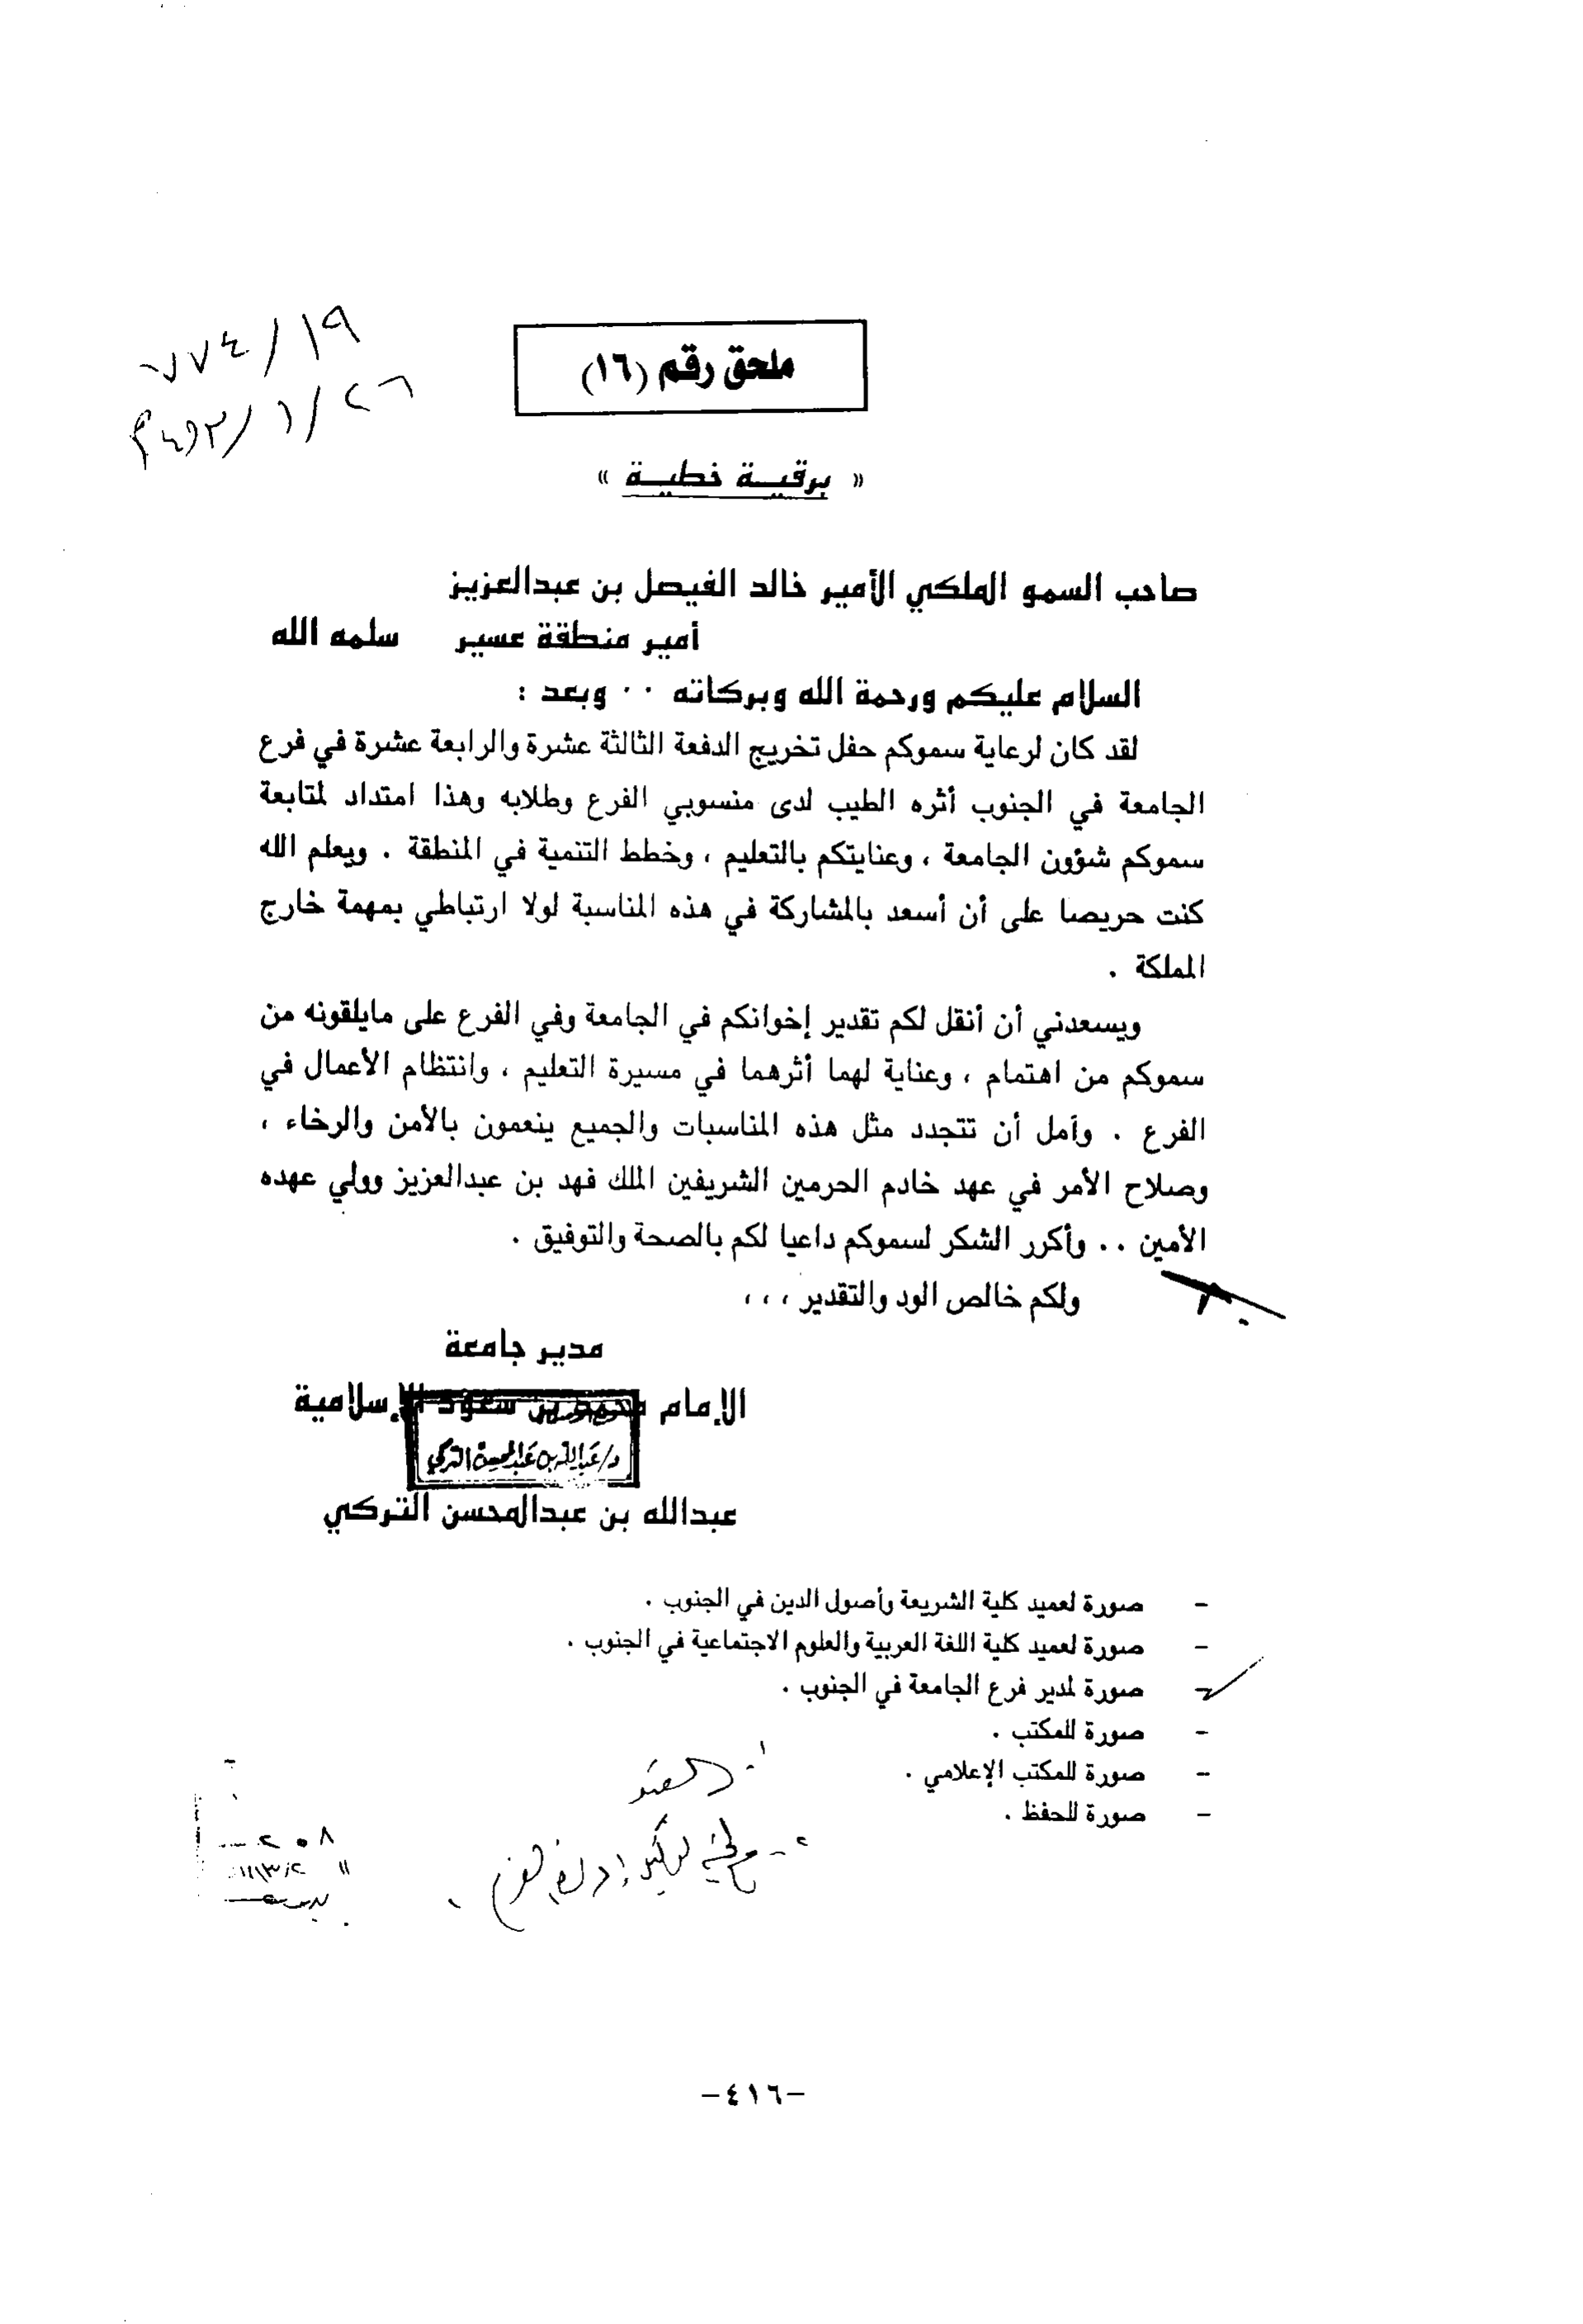 ملحق رقم (١٦)
١٩/
« برقية خطية »
صاحب السمو الملكي الأمير خالد الفيصل بن عبدالعزيز
أمير منطقة عسير سلمه الله
السلام عليكم ورحمة الله وبركاته ٠٠ وبعد :
لقد كان لرعاية سموكم حفل تخريج الدفعة الثالثة عشرة والرابعة عشرة في فرع
الجامعة في الجنوب أثره الطيب لدى منسوبي الفرع وطلابه وهذا امتداد لمتابعة
سموكم شؤون الجامعة ، وعنايتكم بالتعليم ، وخطط التنمية في المنطقة . ويعلم الله
كنت حريصا على أن أسعد بالمشاركة في هذه المناسبة لولا ارتباطي بمهمة خارج
المملكة .
ويسعدني أن أنقل لكم تقدير إخوانكم في الجامعة وفي الفرع على مايلقونه من
سموكم من اهتمام ، وعناية لهما أثرهما في مسيرة التعليم ، وانتظام الأعمال في
الفرع . وآمل أن تتجدد مثل هذه المناسبات والجميع ينعمون بالأمن والرخاء ،
وصلاح الأمر في عهد خادم الحرمين الشريفين الملك فهد بن عبدالعزيز وولي عهده
الأمين .. وأكرر الشكر لسموكم داعيا لكم بالصحة والتوفيق .
ولكم خالص الود والتقدير ، ، ،
مدير جامعة
الإمام محمد بن سعود الإسلامية
د/عبدالله بن عبدالمحسن التركي
عبدالله بن عبدالمحسن التركي
- صورة لعميد كلية الشريعة وأصول الدين في الجنوب .
- صورة لعميد كلية اللغة العربية والعلوم الاجتماعية في الجنوب .
- صورة لمدير فرع الجامعة في الجنوب .
- صورة للمكتب .
- صورة للمكتب الإعلامي .
- صورة للحفظ .
-٤١٦-